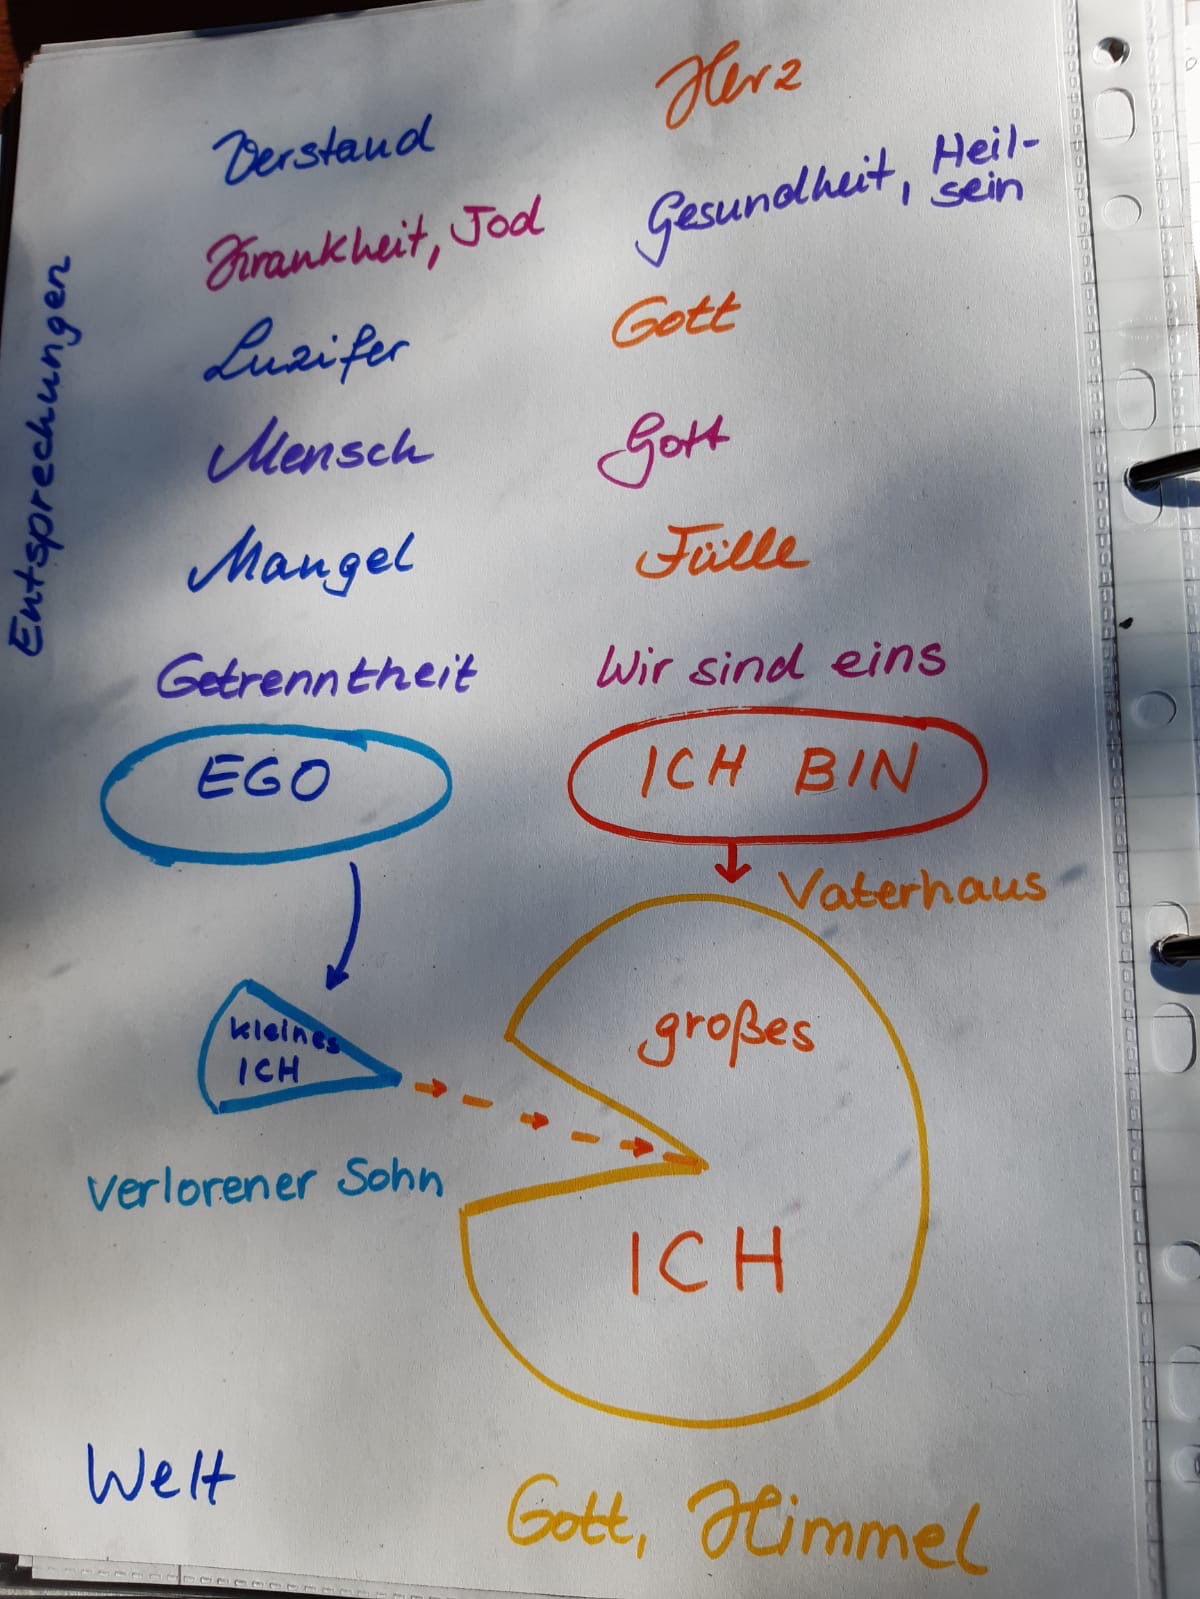 Entsprechungen
Verstand
Herz
Krankheit, Tod
Gesundheit, Heil-
sein
Luzifer
Gott
Mensch
Gott
Mangel
Fülle
Getrenntheit
Wir sind eins
EGO
ICH BIN
Vaterhaus
kleines
ICH
großes
ICH
verlorener Sohn
Welt
Gott, Himmel